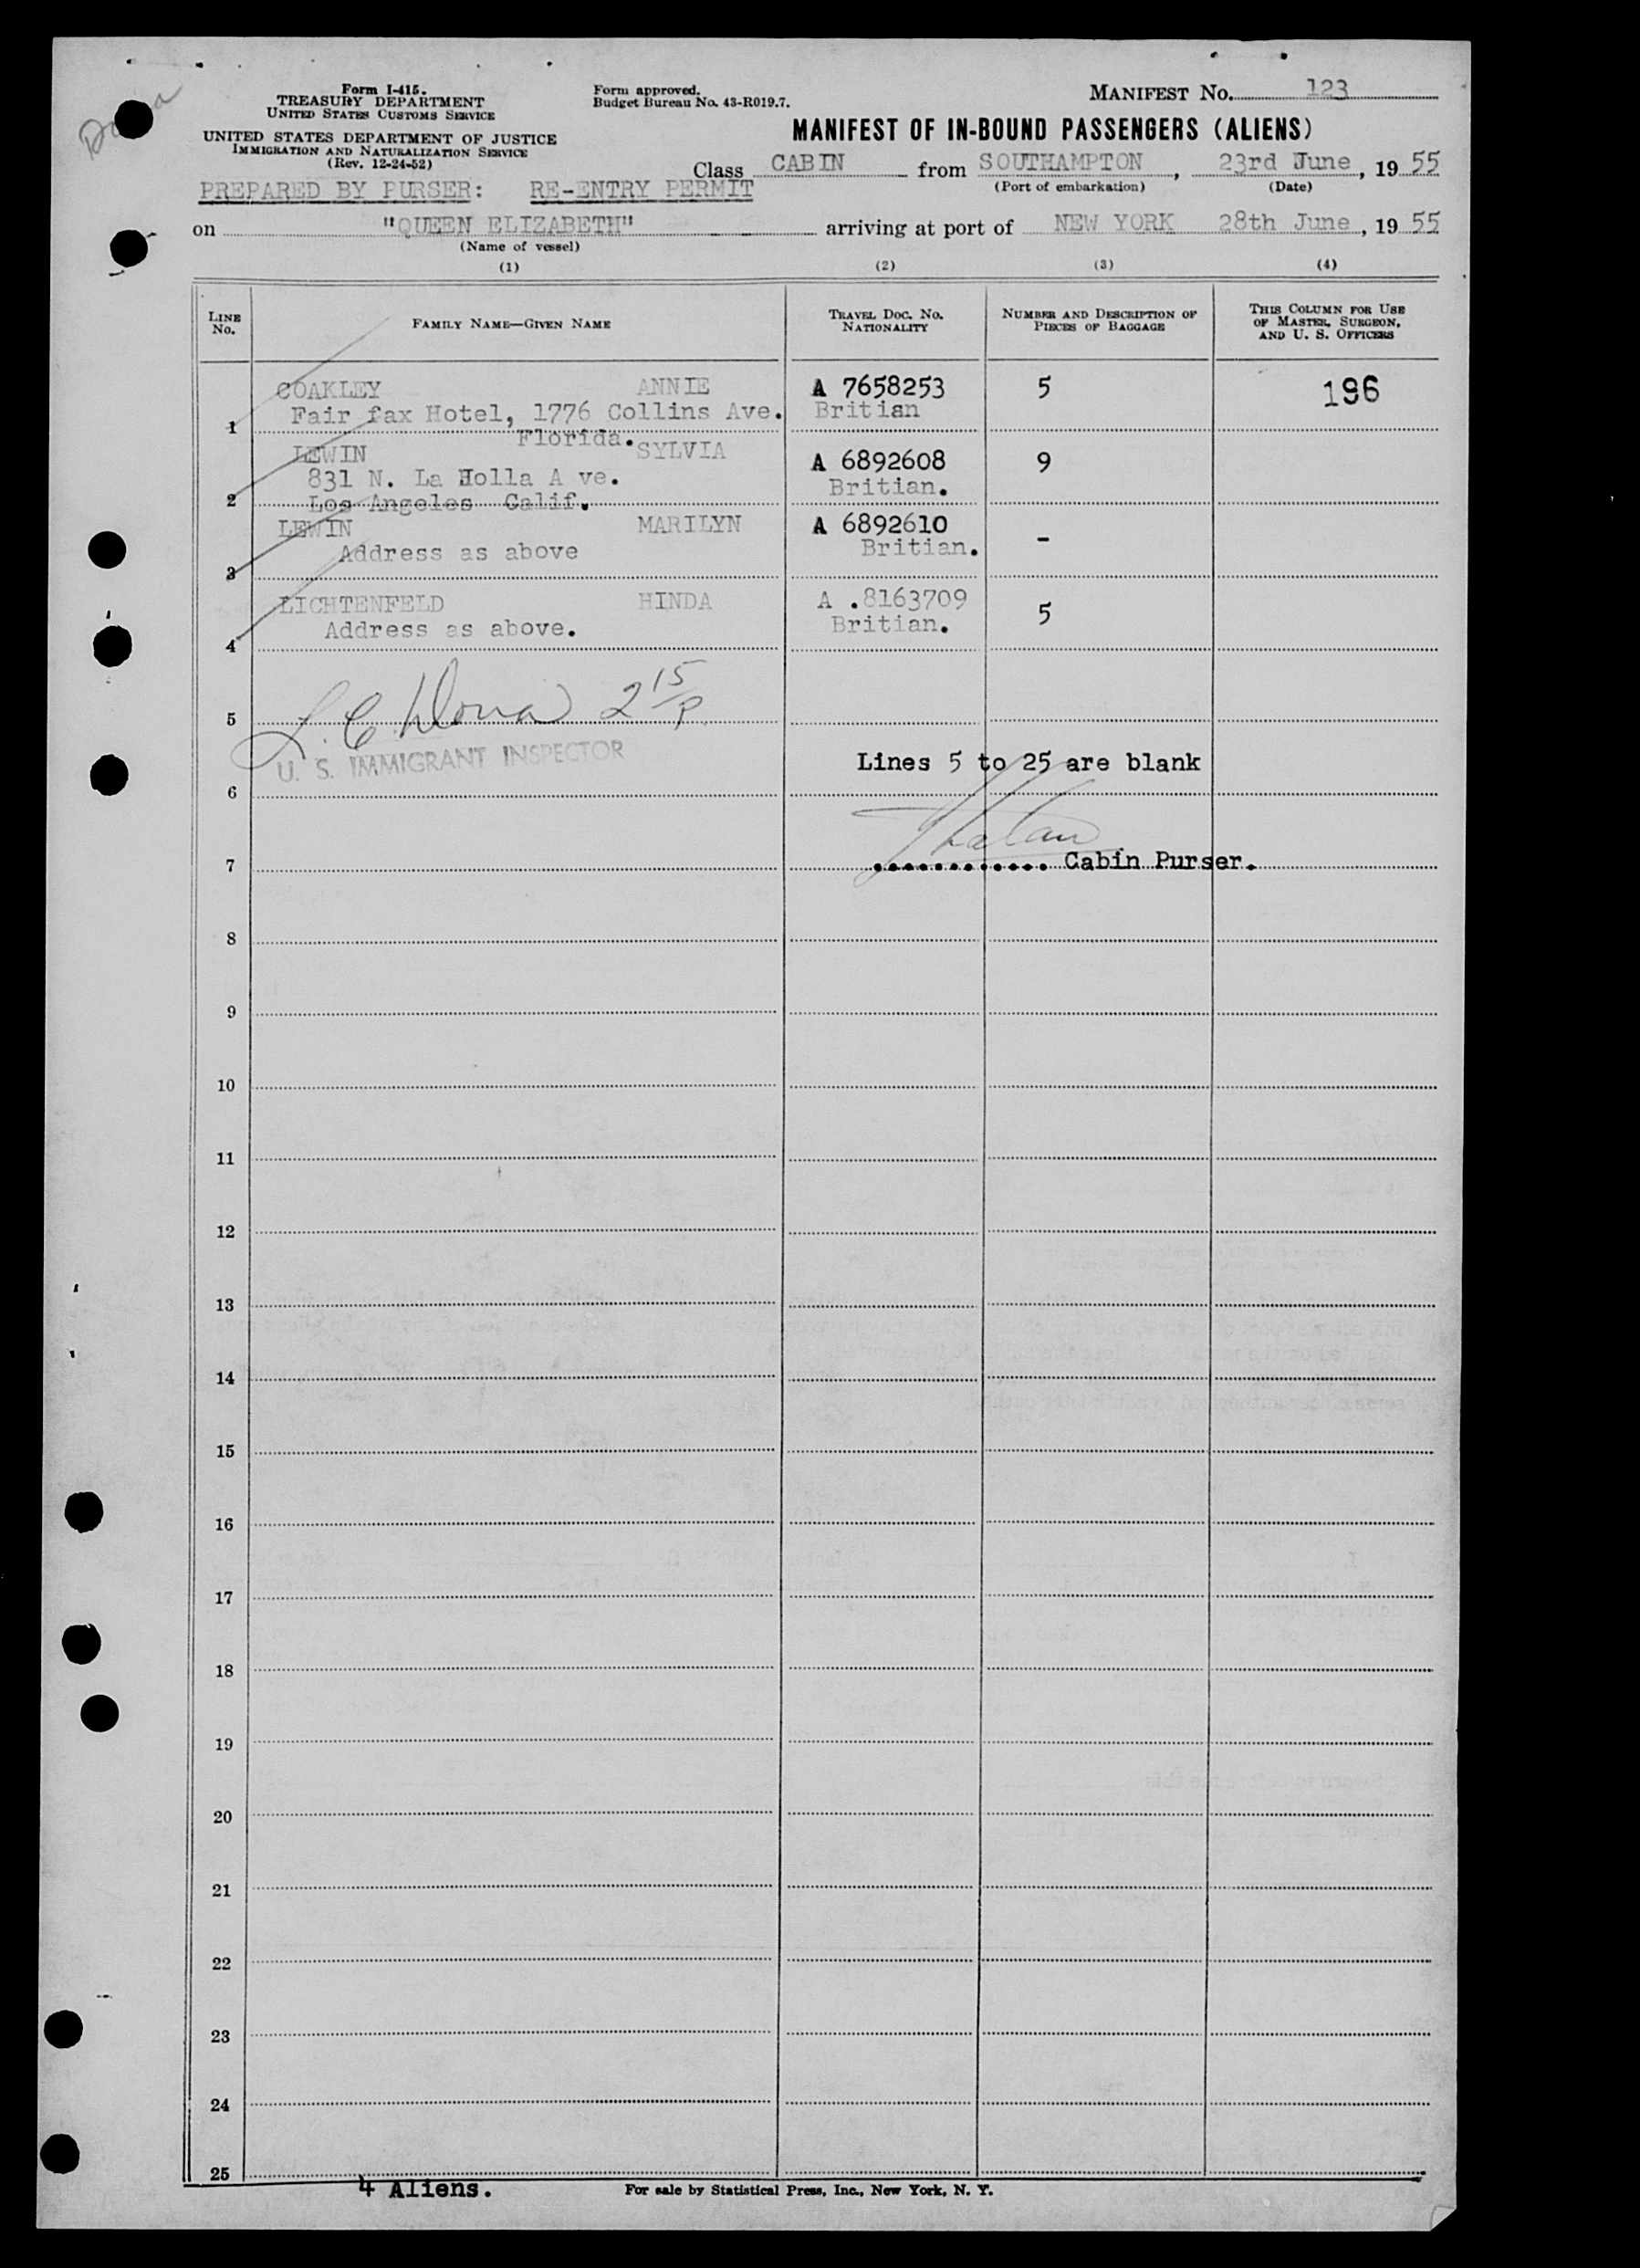 Form I-415.
TREASURY DEPARTMENT
UNITED STATES CUSTOMS SERVICE
UNITED STATES DEPARTMENT OF JUSTICE
IMMIGRATION AND NATURALIZATION SERVICE
(Rev. 12-24-52)
Form approved.
Budget Bureau No. 43-R019.7.
MANIFEST No. 123
MANIFEST OF IN-BOUND PASSENGERS (ALIENS)
Class CABIN from SOUTHAMPTON, 23rd June, 19 55
(Port of embarkation) (Date)
PREPARED BY PURSER: RE-ENTRY PERMIT
on "QUEEN ELIZABETH" arriving at port of NEW YORK 28th June, 19 55
(Name of vessel)
(1) (2) (3) (4)
LINE No. FAMILY NAME—GIVEN NAME TRAVEL DOC. No. NATIONALITY NUMBER AND DESCRIPTION OF PIECES OF BAGGAGE THIS COLUMN FOR USE OF MASTER, SURGEON, AND U. S. OFFICERS
COAKLEY ANNIE A 7658253 5 196
Fair fax Hotel, 1776 Collins Ave. Britian
1 Florida.
LEWIN SYLVIA A 6892608 9
831 N. La Holla A ve. Britian.
2 Los Angeles Calif.
LEWIN MARILYN A 6892610 -
Address as above Britian.
3
LICHTENFELD HINDA A .8163709 5
Address as above. Britian.
4
2 15/P
5
U. S. IMMIGRANT INSPECTOR
Lines 5 to 25 are blank
6
7 ............ Cabin Purser.
8
9
10
11
12
13
14
15
16
17
18
19
20
21
22
23
24
25
4 Aliens.
For sale by Statistical Press, Inc., New York, N. Y.